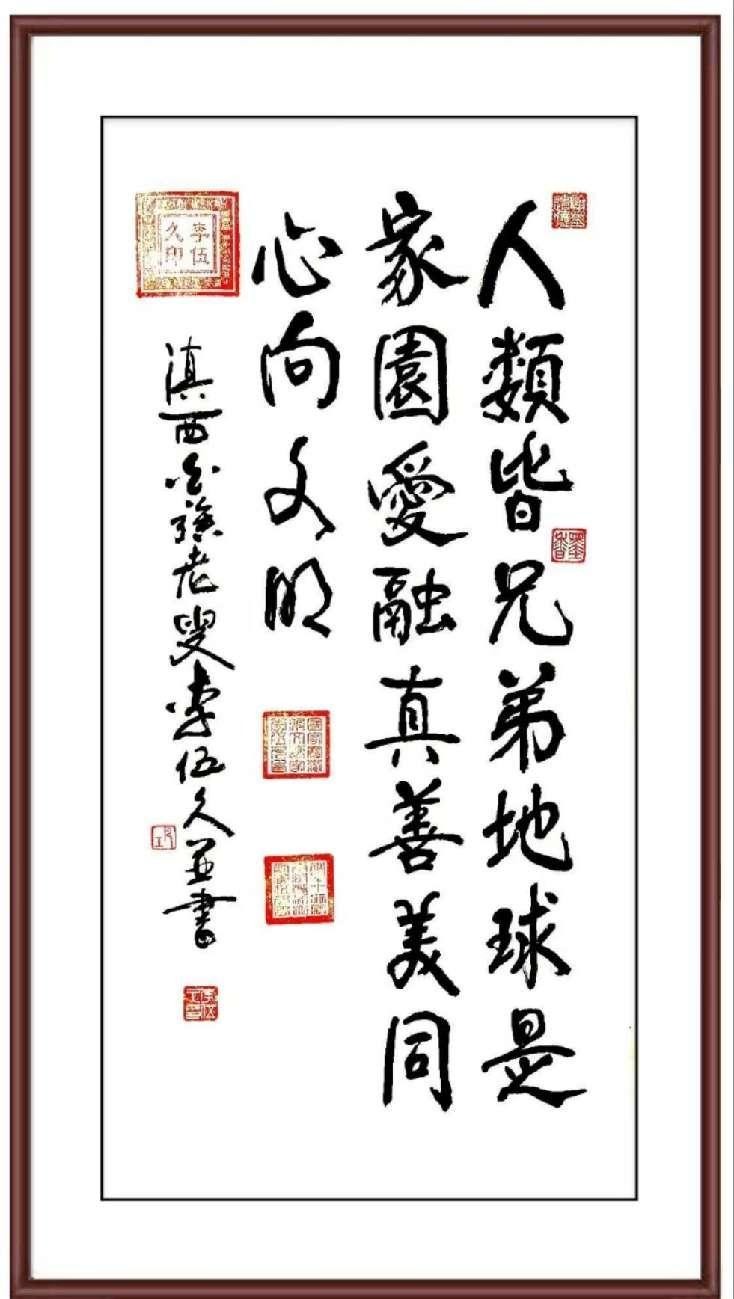 人類皆兄弟地球是
家園愛融真善美同
心向文明
滇西老叟李伍久並書
李伍久印